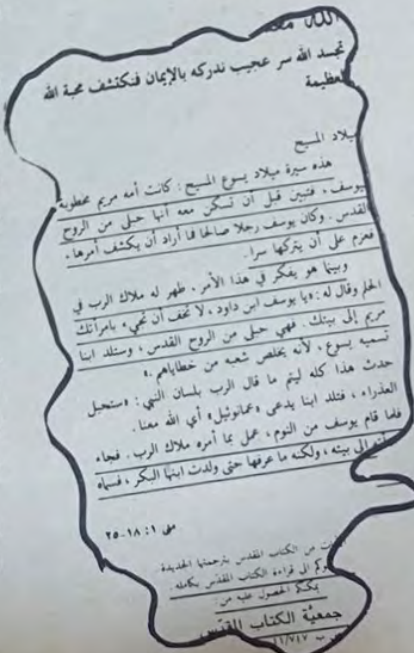 الله معنا
تجسد الله سر عجيب ندركه بالإيمان فنكتشف محبة الله
العظيمة
ميلاد المسيح
هذه سيرة ميلاد يسوع المسيح : كانت أمه مريم مخطوبة
ليوسف ، فتبين قبل أن تسكن معه أنها حبلى من الروح
القدس . وكان يوسف رجلا صالحا فما أراد أن يكشف أمرها ،
فعزم على أن يتركها سرا .
وبينما هو يفكر في هذا الأمر ، ظهر له ملاك الرب في
الحلم وقال له : «يا يوسف ابن داود ، لا تخف أن تجيء بامرأتك
مريم إلى بيتك . فهي حبلى من الروح القدس ، وستلد ابنا
تسميه يسوع ، لأنه يخلص شعبه من خطاياهم .»
حدث هذا كله ليتم ما قال الرب بلسان النبي : «ستحبل
العذراء ، فتلد ابنا يدعى «عمانوئيل» أي الله معنا .
فلما قام يوسف من النوم ، عمل بما أمره ملاك الرب . فجاء
إلى بيته ، ولكنه ما عرفها حتى ولدت ابنها البكر ، فسماه
متى ١ : ١٨-٢٥
من الكتاب المقدس بترجمتها الجديدة
إلى قراءة الكتاب المقدس بكامله .
يمكنكم الحصول عليه من
جمعية الكتاب المقدس
ب ١١/٧٤٧